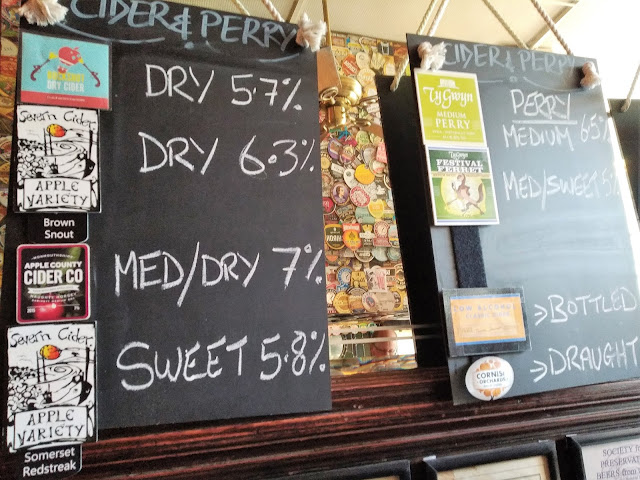 CIDER & PERRY
DRY CIDER
DRY 5.7%
Severn Cider
APPLE
VARIETY
Brown
Snout
DRY 6.3%
APPLE COUNTY
CIDER CO
MED/DRY 7%
Severn Cider
APPLE
VARIETY
Somerset
Redstreak
SWEET 5.8%
CIDER & PERRY
TyGwyn
MEDIUM
PERRY
PERRY
MEDIUM 6.5%
FESTIVAL
FERRET
MED/SWEET 5%
→BOTTLED
CORNISH
ORCHARDS
→DRAUGHT
SOCIETY
PRESERVAT
BEERS from